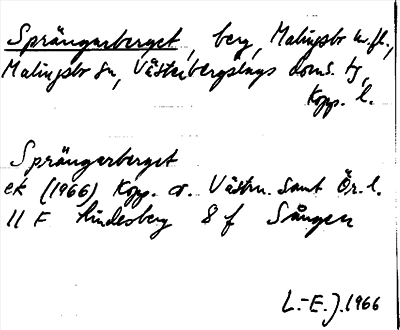 Sprängarberget, berg, Malingsbo m. fl.,
Malingsbo sn, Västerbergslags doms. tj,
Kopp. l.
Sprängarberget
ek (1966) Kopp. o. Västm. samt Ör. l.
11 F Lindesberg 8 f Sången
L.-E. J. 1966